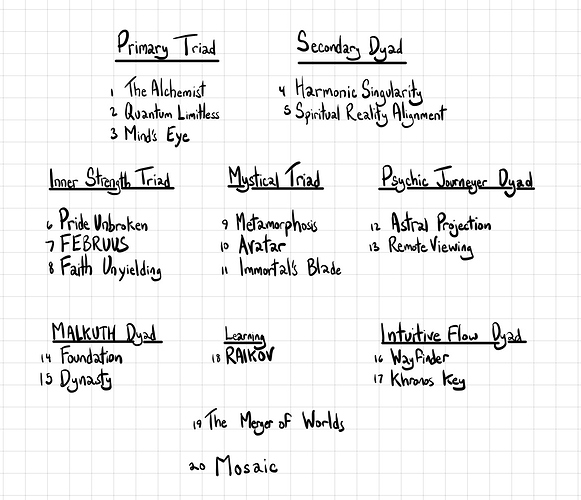 Primary Triad
1 The Alchemist
2 Quantum Limitless
3 Mind's Eye
Secondary Dyad
4 Harmonic Singularity
5 Spiritual Reality Alignment
Inner Strength Triad
6 Pride Unbroken
7 FEBRUUS
8 Faith Unyielding
Mystical Triad
9 Metamorphosis
10 Avatar
11 Immortal's Blade
Psychic Journeyer Dyad
12 Astral Projection
13 Remote Viewing
MALKUTH Dyad
14 Foundation
15 Dynasty
Learning
18 RAIKOV
Intuitive Flow Dyad
16 Wayfinder
17 Khronos Key
19 The Merger of Worlds
20 Mosaic